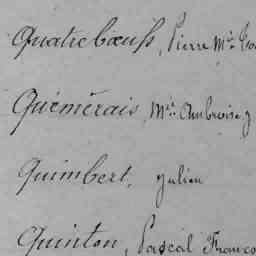 Quatrebœufs, Pierre Mie
Quémerais, Mie Ambroise
Quimbert, Julien
Quinton, Pascal Franco